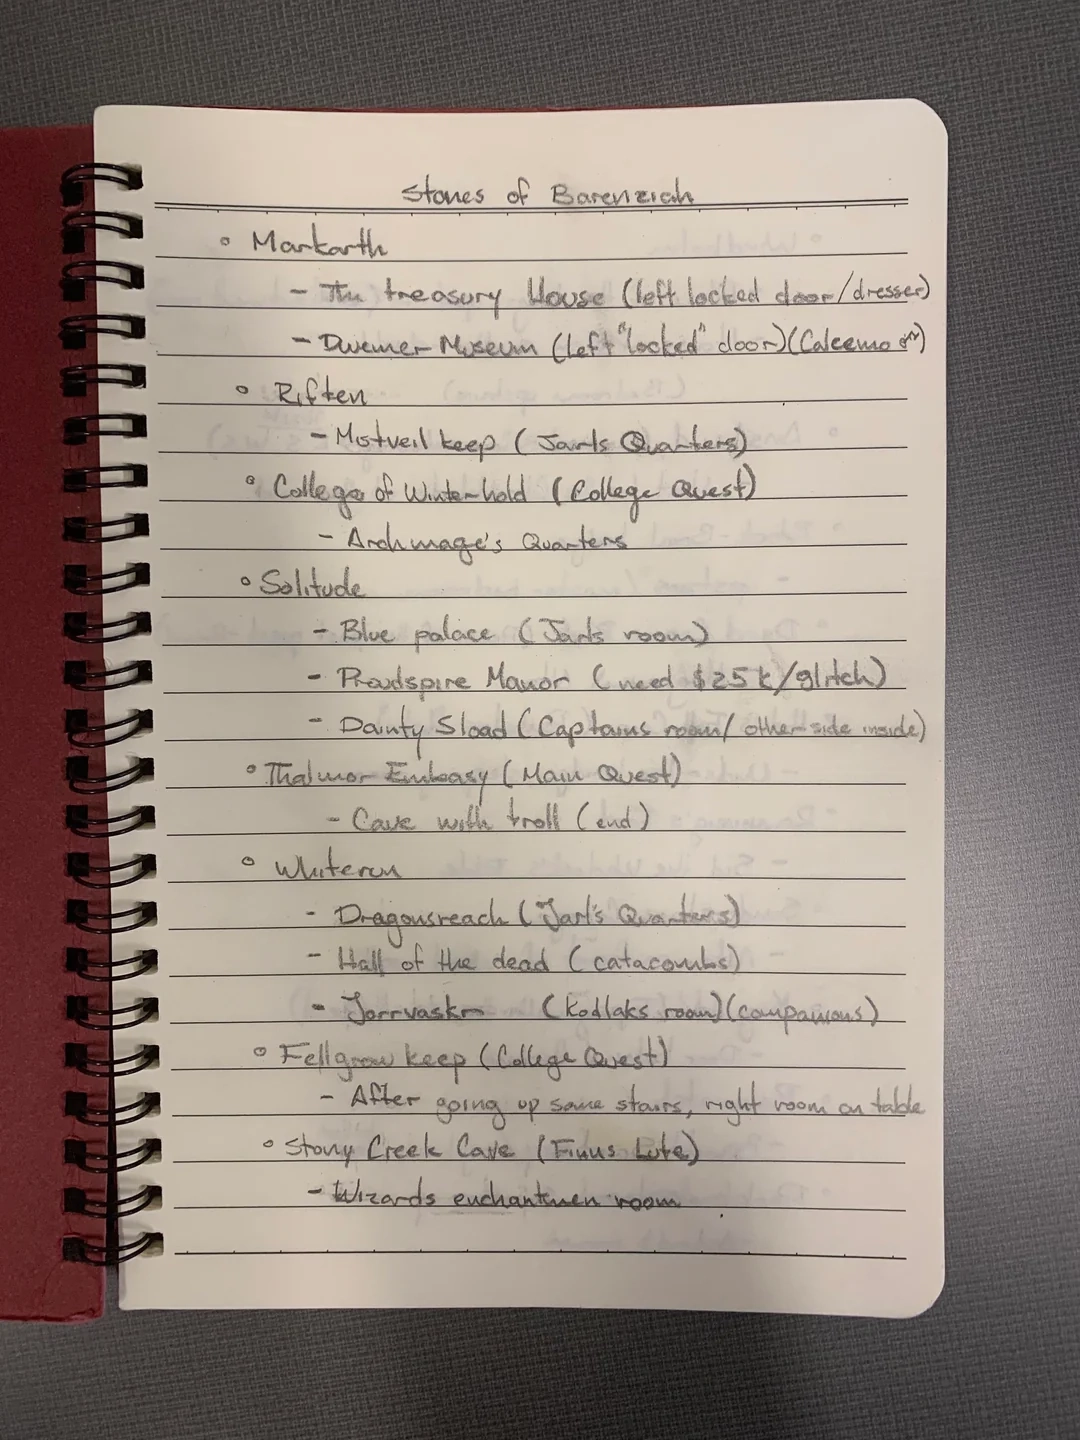 Stones of Barenziah
° Markarth
- The treasury House (left locked door/dresser)
- Dwemer Museum (left "locked" door)(Calcemo
° Riften
- Mistveil keep (Jarls Quarters)
° College of Winterhold (College Quest)
- Archmage's Quarters
° Solitude
- Blue palace (Jarls room)
- Proudspire Manor (need $25k/glitch)
- Dainty Sload (Captains room/ other side inside)
° Thalmor Embasy (Main Quest)
- Cave with troll (end)
° Whiterun
- Dragonsreach (Jarl's Quarters)
- Hall of the dead (catacombs)
- Jorrvaskr (Kodlaks room)(companions)
° Fellgrow keep (College Quest)
- After going up some stairs, right room on table
° Stony Creek Cave (Finns Lute)
- Wizards enchantmen room